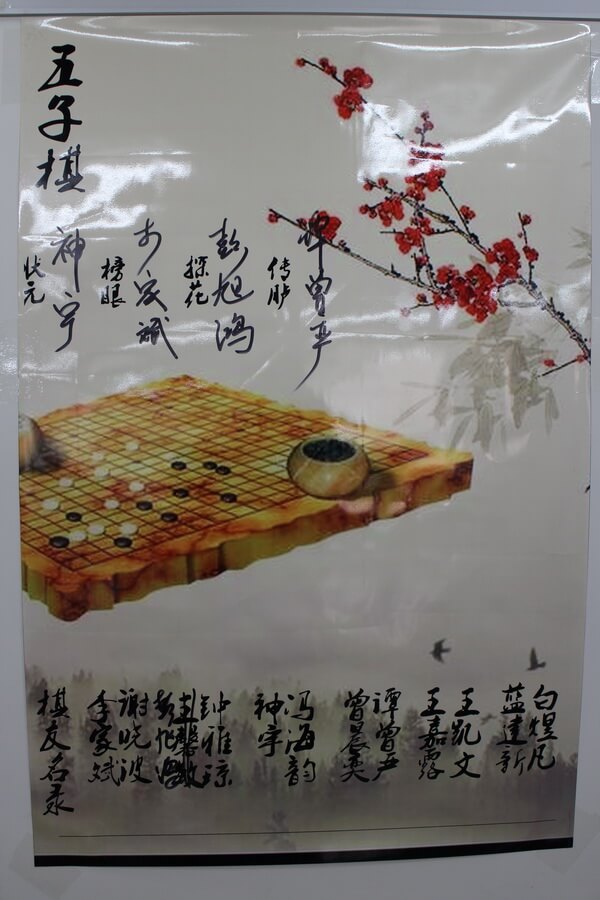 五子棋
状元
神宇
榜眼
李家斌
探花
彭旭鸿
传胪
谭曾严
棋友名录
李家斌
谢晓波
彭旭鸿
钟雅琼
神宇
冯海韵
曾晨奕
谭曾严
王嘉霖
王凯文
蓝建新
白煜凡